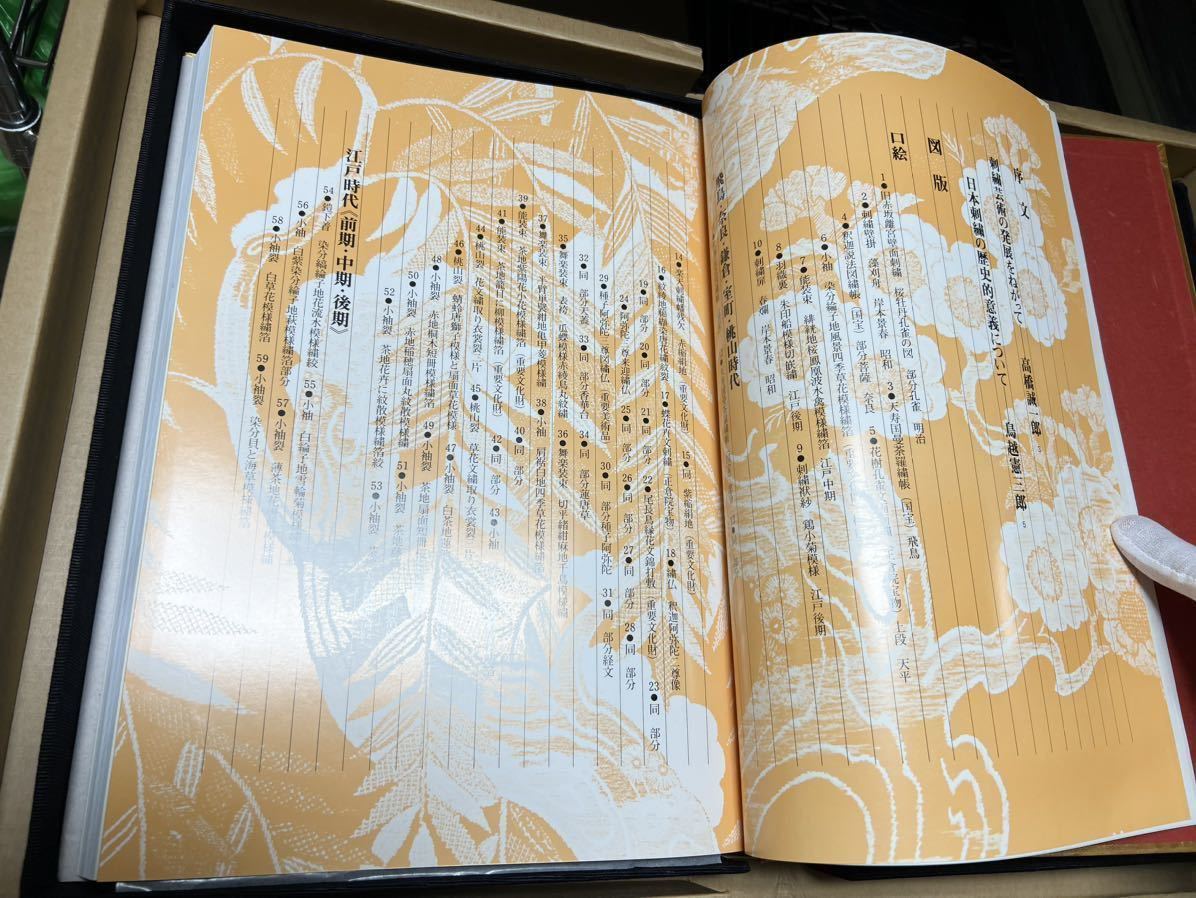 序文
刺繍芸術の発展をねがって 高橋誠一郎 3
日本刺繍の歴史的意義について 鳥越憲三郎 5
図版
口絵
1●旧赤坂離宮壁面刺繍 桜牡丹孔雀の図 部分孔雀 明治
2●刺繍壁掛 藻刈舟 岸本景春 昭和 3●天寿国曼荼羅繍帳(国宝)飛鳥
4●釈迦説法図繍帳(国宝)部分菩薩 奈良 5●花樹孔雀文 上段 天平
6●小袖 染分綸子地風景四季草花模様繍箔 江戸中期
7●能装束 緋紋地桜鳳凰波水盞模様繍箔 江戸後期
8●羽織裏 朱印船模様切嵌繍 江戸後期 9●刺繍袱紗 鶏小菊模様 江戸後期
10●刺繍扉 春爛 岸本景春 昭和
飛鳥・奈良・鎌倉・室町・桃山時代
14 赤絁絹地(重要文化財) 15●同 紫絁絹地(重要文化財)
16 17●蝶花卉文刺繍(正倉院宝物) 18●繍仏 釈迦阿弥陀二尊像
19●同 部分 20●同 部分 21●同 部分 22●尾長鳥縁花文錦打敷(重要文化財) 23●同 部分
24●阿弥陀三尊来迎繍仏 25●同 部分 26●同 部分 27●同 部分 28●同 部分
29●種子阿弥陀三尊図繍仏(重要美術品) 30●同 部分種子阿弥陀 31●同 部分経文
32●同 部分天蓋 33●同 部分香華台 34●同 部分蓮唐草
35●舞楽装束 表袴 瓜蝶模様赤綾島丸紋繍 36●舞楽装束 切平緒紺麻地千鳥模様繍
37●舞楽装束 半臂単襲紺地亀甲菱模様繍 38●小袖 肩裾白地四季草花模様繍箔
39●能装束 茶地紫陽花小花模様繍箔(重要文化財) 40●同 部分
41●能装束 茶地籠目に柳模様繍箔(重要文化財) 42●同 部分 43●小袖
44●桃山裂 花文繍取り衣裳裂二片 45●桃山裂 草花文繍取り衣裳裂三片
46●桃山裂 蜻蛉唐獅子模様と扇面草花模様 47●小袖裂 白茶地蓮
48●小袖裂 赤地桐木短冊模様繍箔 49●小袖裂 茶地扇面短冊
50●小袖裂 赤地稲穂扇面丸紋散模様繍箔 51●小袖裂
52●小袖裂 茶地花卉に紋散模様繍箔絞 53●小袖裂
江戸時代《前期・中期・後期》
54●鎧下着 染分縞綸子地花流水模様繍絞 55●小袖 白綸子地雪輪菊模様
56●小袖 白紫染分綸子地萩模様繍箔部分 57●小袖裂 薄茶地花
58●小袖裂 白草花模様繍箔 59●小袖裂 染分貝と海草模様繍箔